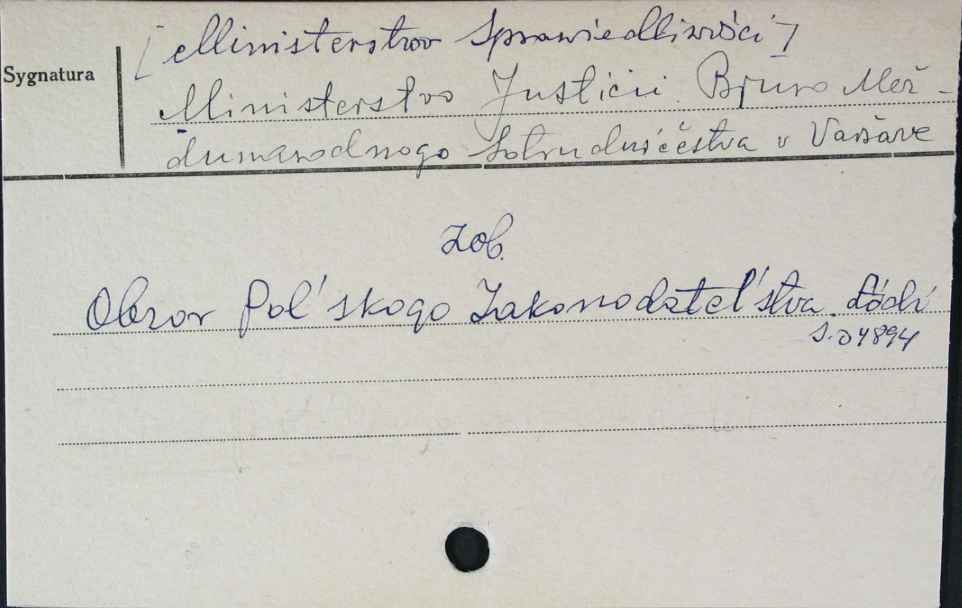 [Ministerstvo Sprawiedliwości]
Sygnatura
Ministerstvo Justicii. Bjuro Mež-
dunarodnogo Sotrudničestva v Varšave
zob.
Obzor Pol'skogo Zakonodatel'stva. Łódź
S.04894